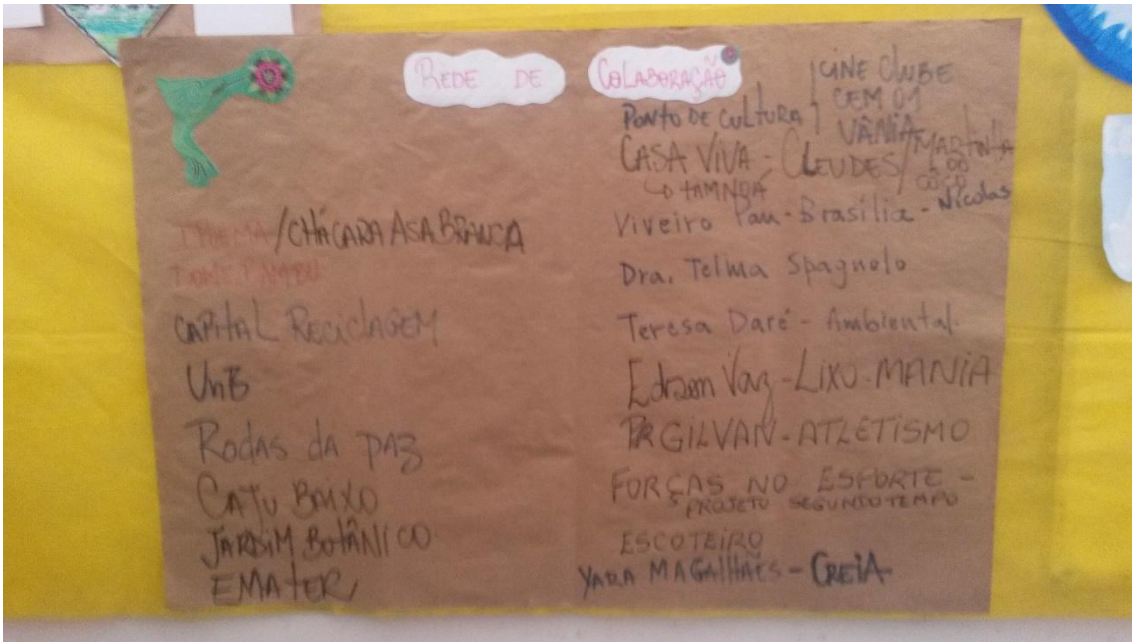 REDE DE COLABORAÇÃO
/CHÁCARA ASA BRANCA
CAPITAL RECICLAGEM
UnB
RODAS DA PAZ
CAJU BAIXO
JARDIM BOTÂNICO
EMATER
CINE CLUBE
CEM 01
PONTO DE CULTURA / VÂNIA
CASA VIVA - CLEUDES / MARTINHA
Viveiro Pau-Brasília - Nicolas
Dra. Telma Spagnolo
Teresa Daré - Ambiental
Edson Vaz - LIXO-MANIA
PR GILVAN - ATLETISMO
FORÇAS NO ESPORTE -
PROJETO SEGUNDO TEMPO
ESCOTEIRO
YARA MAGALHÃES - CREIA